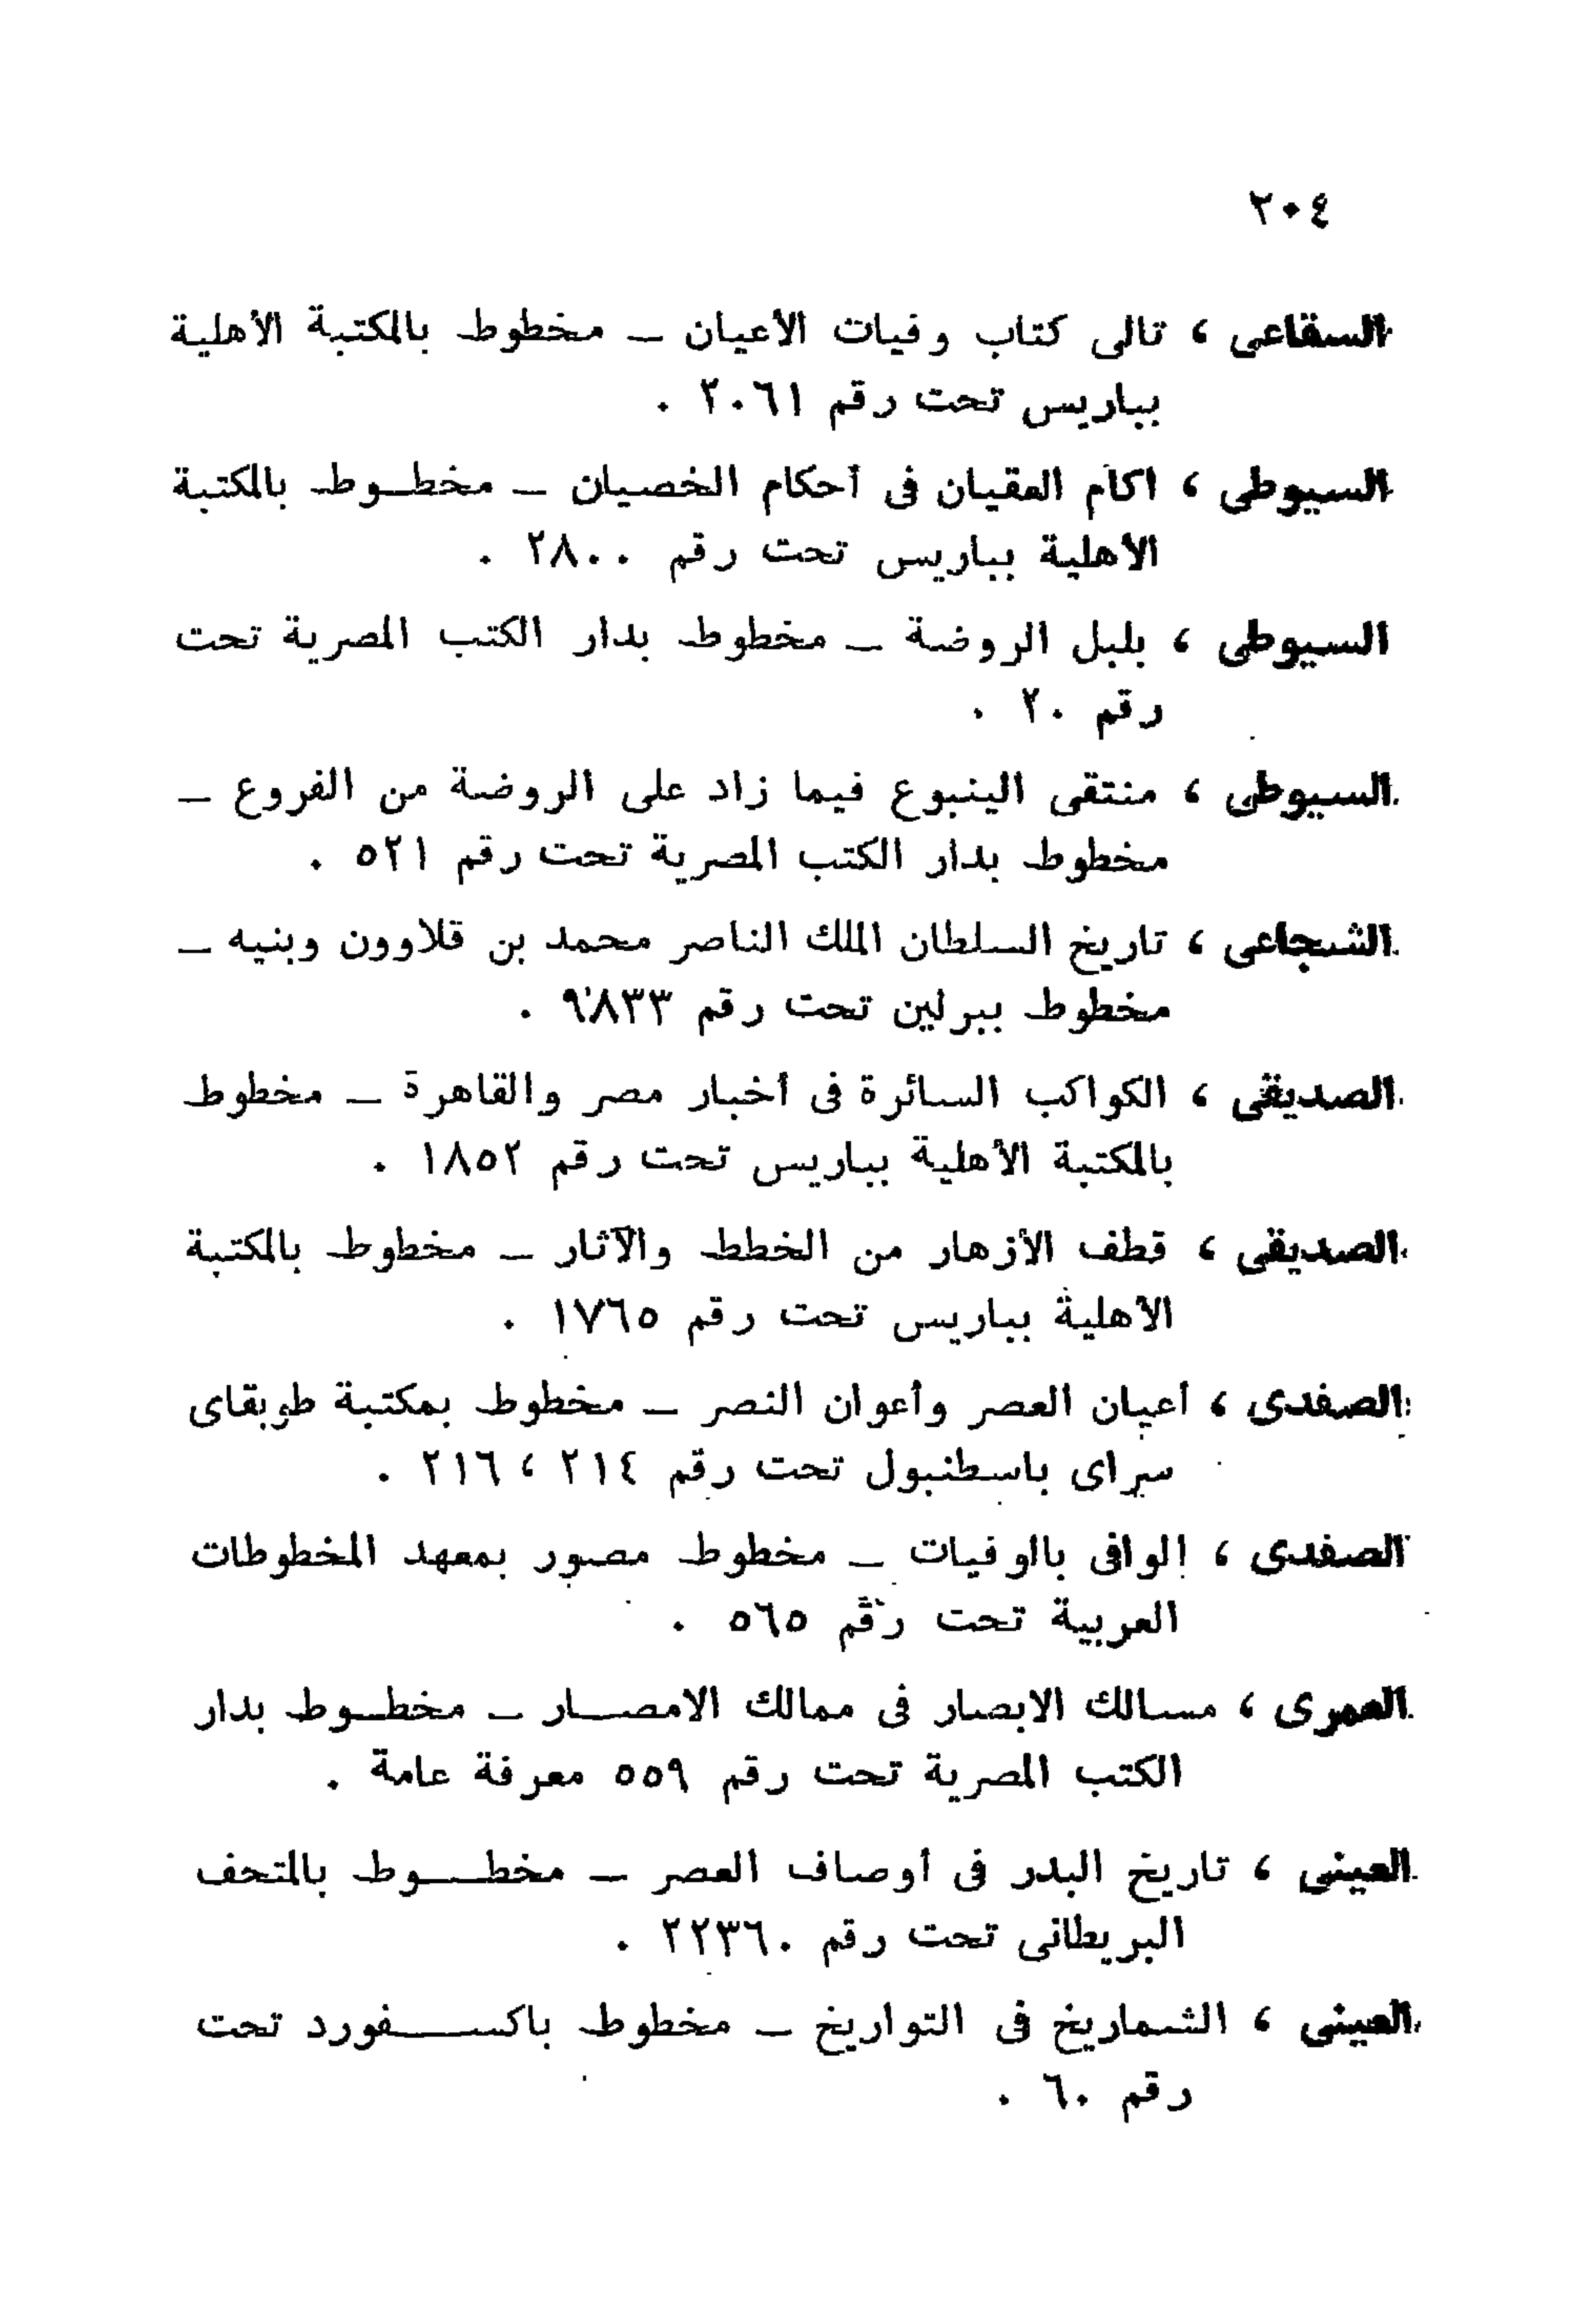 ٢٠٤
السقاعى ، تالى كتاب وفيات الأعيان – مخطوط بالمكتبة الأهلية
بباريس تحت رقم ٢٠٦١ .
السيوطى ، اكام العقيان فى أحكام الخصيان – مخطوط بالمكتبة
الأهلية بباريس تحت رقم ٢٨٠٠ .
السيوطى ، بلبل الروضة – مخطوط بدار الكتب المصرية تحت
رقم ٢٠ .
السيوطى ، منتقى الينبوع فيما زاد على الروضة من الفروع –
مخطوط بدار الكتب المصرية تحت رقم ٥٢١ .
الشجاعى ، تاريخ السلطان الملك الناصر محمد بن قلاوون وبنيه –
مخطوط ببرلين تحت رقم ٩٨٣٣ .
الصديقى ، الكواكب السائرة فى أخبار مصر والقاهرة – مخطوط
بالمكتبة الأهلية بباريس تحت رقم ١٨٥٢ .
الصديقى ، قطف الأزهار من الخطط والآثار – مخطوط بالمكتبة
الأهلية بباريس تحت رقم ١٧٦٥ .
الصفدى ، أعيان العصر وأعوان النصر – مخطوط بمكتبة طوبقاى
سراى باسطنبول تحت رقم ٢١٤ ، ٢١٦ .
الصفدى ، الوافى بالوفيات – مخطوط مصور بمعهد المخطوطات
العربية تحت رقم ٥٦٥ .
العمرى ، مسالك الابصار فى ممالك الامصار – مخطوط بدار
الكتب المصرية تحت رقم ٥٥٩ معرفة عامة .
العينى ، تاريخ البدر فى أوصاف العصر – مخطوط بالمتحف
البريطانى تحت رقم ٢٢٣٦٠ .
العينى ، الشماريخ فى التواريخ – مخطوط باكسفورد تحت
رقم ٦٠ .